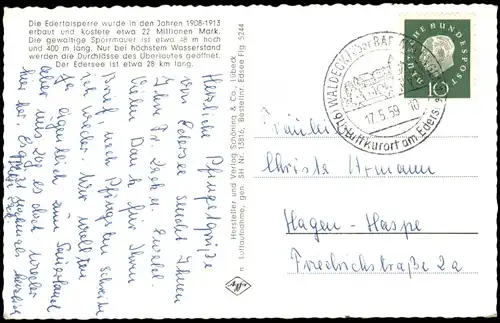 Die Edertalsperre wurde in den Jahren 1908-1913
erbaut und kostete etwa 22 Millionen Mark.
Die gewaltige Sperrmauer ist etwa 48 m hoch
und 400 m lang. Nur bei höchstem Wasserstand
werden die Durchlässe des Überlaufes geöffnet.
Der Edersee ist etwa 28 km lang.
Herzliche Pfingstgrüße
vom Edersee sendet Ihnen
Ihre
Vielen Dank für Ihren
Brief, nach Pfingsten schreibe
ich wieder. Wir wollten
ja eigentlich zum Sauerland
aber uns zog es doch wieder
hier her. Es grüßt nochmals herzlichst
Hersteller und Verlag Schöning & Co., Lübeck
n Luftaufnahme, gen. SH Nr. 13816, Bestellnr. Edsee Flg 5244
Agfa
WALDECK
17.5.59.-10
Luftkurort am Edersee
DEUTSCHE BUNDESPOST
10
Fräulein
Christe
Hagen-Haspe
Friedrichstraße 2a